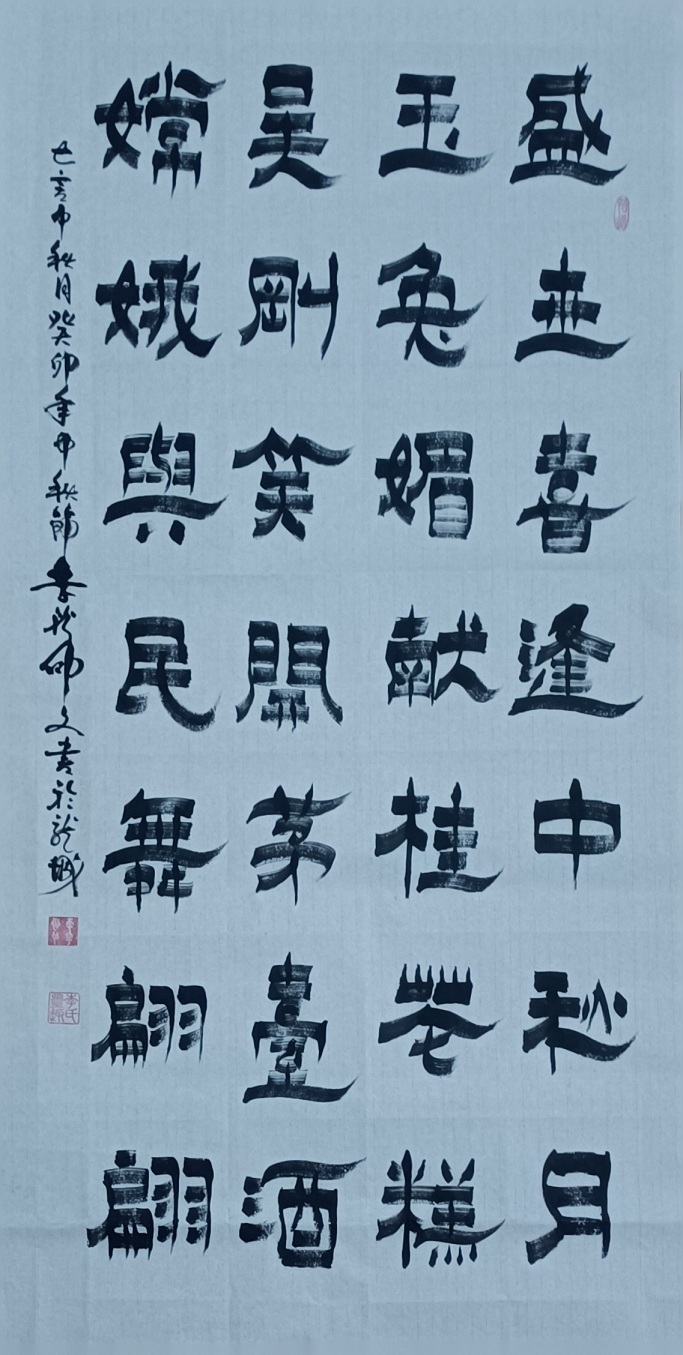 盛世喜逢中秋月
玉兔媚献桂花糕
吴剛笑開茅臺酒
嫦娥與民舞翩翩
己亥中秋月癸卯年中秋節李 师文書於龍城